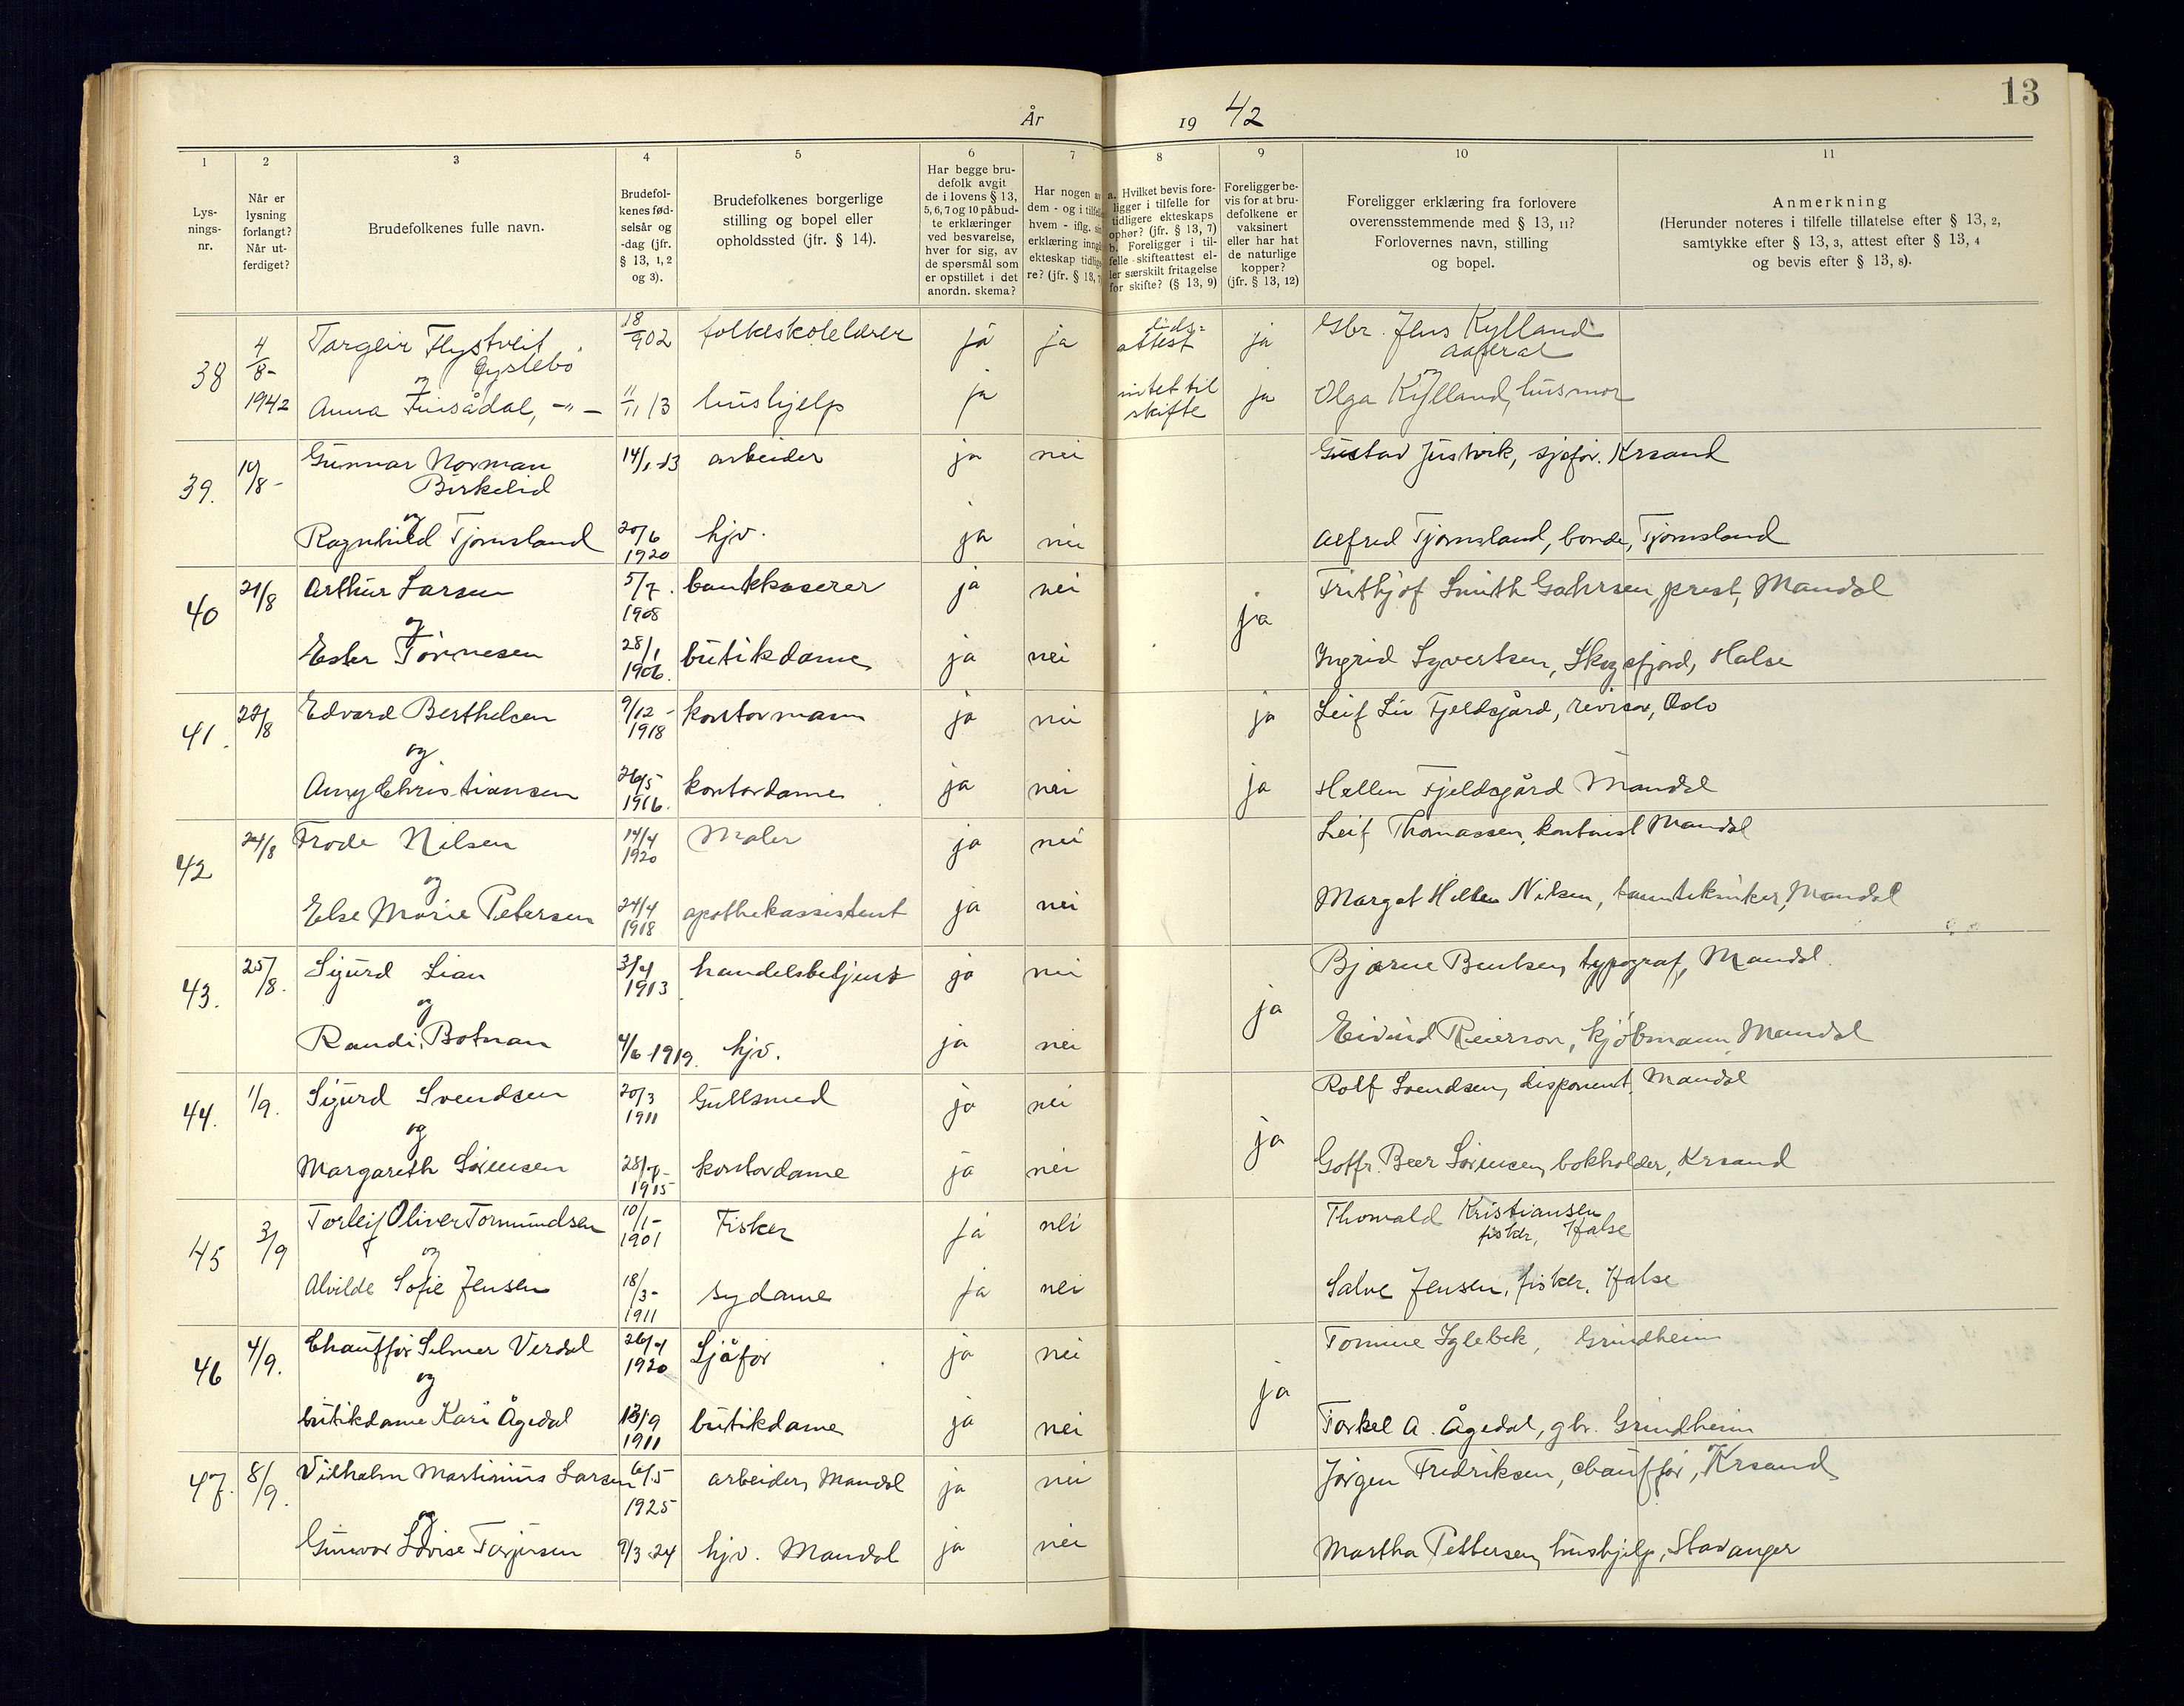 13
År 1942
1
2
3
4
5
6
7
8
9
10
11
Lys-
nings-
nr.
Når er
lysning
forlangt?
Når ut-
ferdiget?
Brudefolkenes fulle navn.
Brudefol-
kenes fød-
selsår og
-dag (jfr.
§ 13, 1, 2
og 3).
Brudefolkenes borgerlige
stilling og bopel eller
opholdssted (jfr. § 14).
Har begge bru-
defolk avgit
de i lovens § 13,
5, 6, 7 og 10 påbud-
te erklæringer
ved besvarelse,
hver for sig, av
de spørsmål som
er opstillet i det
anordn. skema?
Har nogen av
dem - og i tilfelle
hvem - iflg. sin
erklæring inngått
ekteskap tidlige-
re? (jfr. § 13, 7
a. Hvilket bevis fore-
ligger i tilfelle for
tidligere ekteskaps
ophør? (jfr. § 13, 7)
b. Foreligger i til-
felle skifteattest el-
ler særskilt fritagelse
for skifte? (§ 13, 9)
Foreligger be-
vis for at bru-
defolkene er
vaksinert
eller har hat
de naturlige
kopper?
(jfr. § 13, 12)
Foreligger erklæring fra forlovere
overensstemmende med § 13, 11?
Forlovernes navn, stilling
og bopel.
Anmerkning
(Herunder noteres i tilfelle tillatelse efter § 13, 2,
samtykke efter § 13, 3, attest efter § 13, 4
og bevis efter § 13, 8).
38 4/8- 1942 Targeir Flystveit 18/902 folkeskolelærer ja ja attest ja Gbr. Jens Kylland
Øyslebø Aaseral
og
Anna -"- 11/11 13 hushjelp ja intet til skifte ja Olga Kylland, husmor
39. 10/8- Gunnar Norman 14/1-13 arbeider ja nei Gustav Justvik, sjåfør. Krsand
Birkelid
og
Ragnhild Tjomsland 20/6 1920 hjv. ja nei Alfred Tjomsland, bonde, Tjomsland
40 21/8 Arthur Larsen 5/7. 1908 bankkaserer ja nei ja Frithjof Smith Gahrsen, prest, Mandal
og
Ester Tønnesen 28/1 1906. butikdame ja nei Ingrid Syvertsen, Skogsfjord, Halse
41. 22/8 Edvard Berthelsen 9/12- 1918 kontormann ja nei ja Leif Liv Fjeldsgård, revisor, Oslo
og
Amy Christiansen 26/5 1916. kontordame ja nei ja Hellen Fjeldsgård Mandal
42 24/8 Frode Nilsen 14/4 1920 Maler ja nei Leif Thomassen, kontorist Mandal
og
Else Marie Petersen 24/4 1918 apothekassistent ja nei Margot Hellen Nilsen, tanntekniker, Mandal
43. 25/8. Sigurd Lian 3/4 1913 handelsbetjent ja nei Bjarne Bentsen, typograf, Mandal.
og ja
Randi Botnan 4/6 1919. hjv. ja nei Eivind Reierson, kjøbmann, Mandal
44. 1/9. Sigurd Svendsen 20/3 1911 Gullsmed ja nei Rolf Svendsen, disponent, Mandal
og ja
Margareth Sørensen 28/7- 1915 kontordame ja nei Gotfr. Beer Sørensen, bokholder, Krsand
45 3/9 Torleif Oliver Tormundsen 10/1- 1901 Fisker ja nei Thorvald Kristiansen
fisker, Halse
og
Alvilde Sofie Jensen 18/3- 1911 sydame ja nei Salve Jensen, fisker, Halse
46 4/9. Chauffør Selmer Verdal 26/4 1920 Sjåfør ja nei Tomine Iglebek, Grindheim
og ja
butikdame Kari Ågedal 13/9 1911 butikdame ja nei Torkel A. Ågedal, gbr. Grindheim
47. 8/9. Vilhalm Martinius Larsen 6/5 1925 arbeider, Mandal ja nei Jørgen Fredriksen, chauffør, Krsand
og
Gunvor Lovise Torjusen 9/3-24 hjv. Mandal ja nei Martha Pettersen, hushjelp, Stavanger